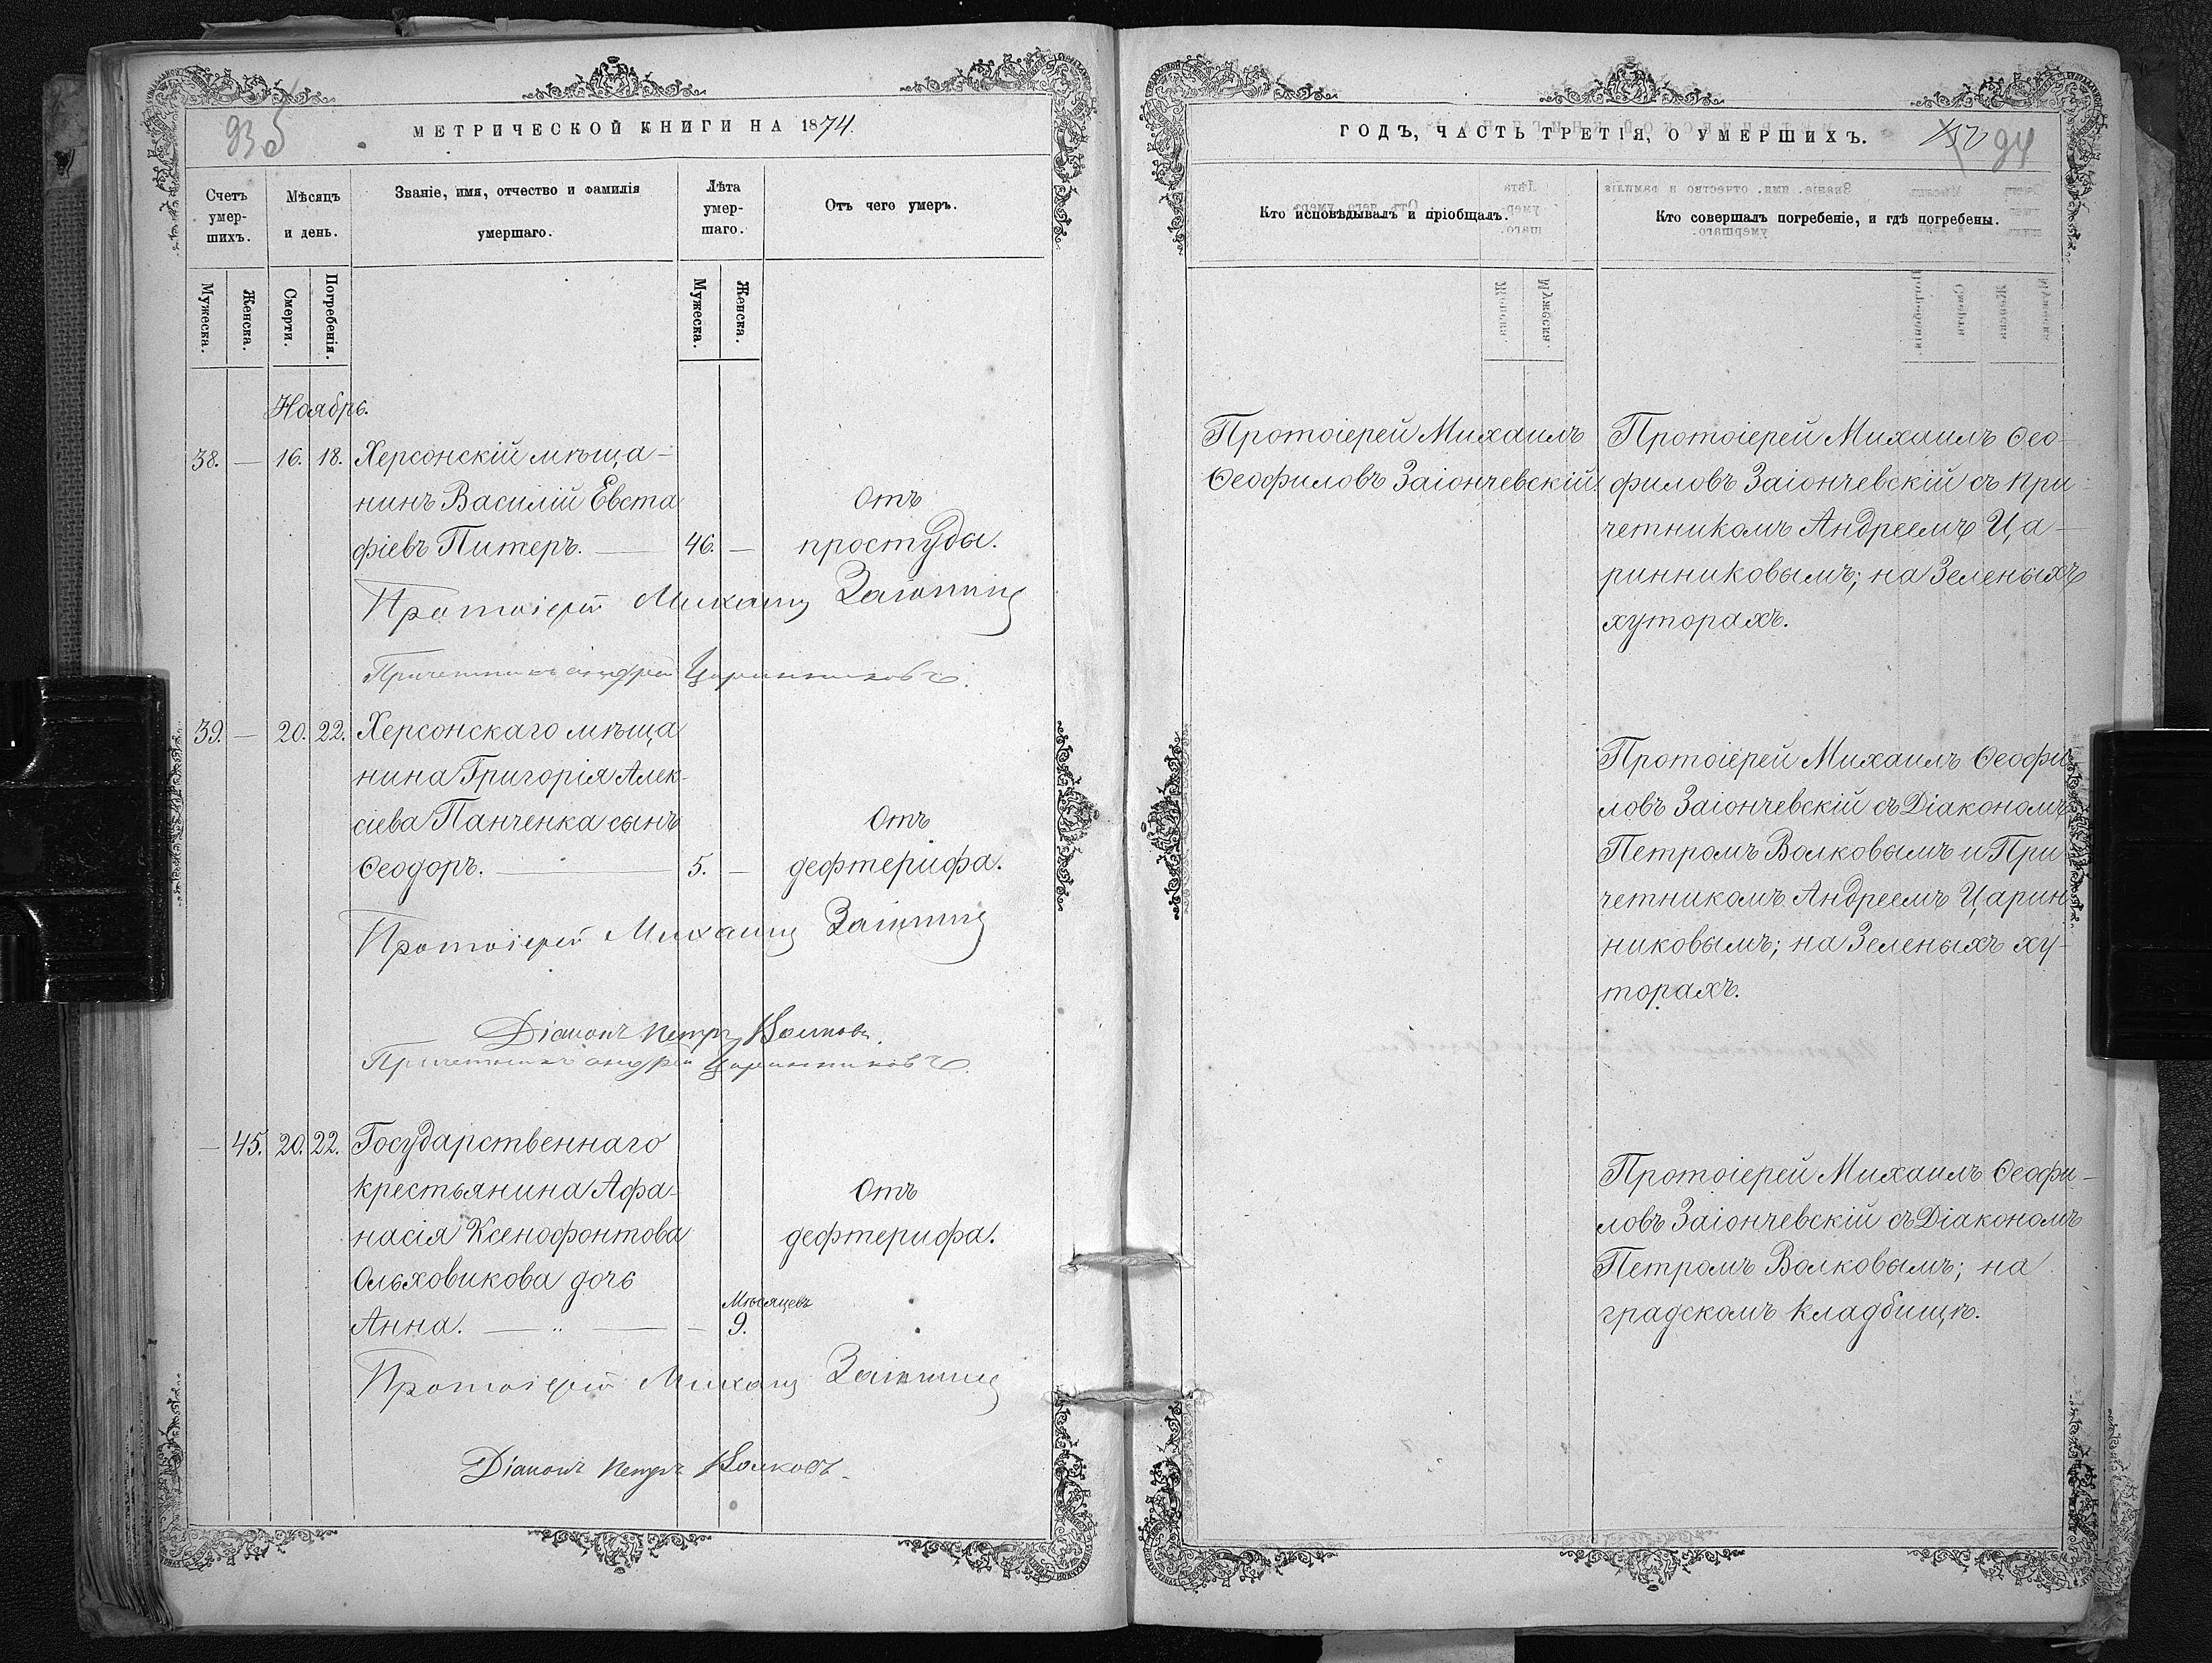 93 б
МЕТРИЧЕСКОЙ КНИГИ НА 1874.
Счетъ
умер-
шихъ.
Мѣсяцъ
и день.
Званіе, имя, отчество и фамилія
умершаго.
Лѣта
умер-
шаго.
Отъ чего умеръ.
Мужеска.
Женска.
Смерти.
Погребенія.
Мужеска.
Женска.
Ноябрь.
38. — 16. 18. Херсонскій мѣща-
нинъ Василій Евста
фіевъ Питеръ. — 46. —
Отъ
простуды.
Протоіерей Михаилъ
Причетникъ Андрей Царинниковъ.
39. — 20. 22. Херсонскаго мѣща
нина Григорія Алек-
сіева Панченка сынъ
Ѳеодоръ. — 5. —
Отъ
дефтерифа.
Протоіерей Михаилъ
Діаконъ Петръ Волковъ.
Причетникъ Андрей Царинниковъ.
— 45. 20. 22. Государственнаго
крестьянина Афа-
насія Ксенофонтова
Ольховикова дочь
Анна. — „ — — Мѣсяцевъ 9.
Отъ
дефтерифа.
Протоіерей Михаилъ
Діаконъ Петръ Волковъ.
ГОДЪ, ЧАСТЬ ТРЕТІЯ, О УМЕРШИХЪ.
94
Кто исповѣдывалъ и пріобщалъ.
Кто совершалъ погребеніе, и гдѣ погребены.
Протоіерей Михаилъ
Ѳеофиловъ Заіончевскій.
Протоіерей Михаилъ Ѳео-
филовъ Заіончевскій съ При-
четникомъ Андреемъ Ца-
ринниковымъ; на Зеленыхъ
хуторахъ.
Протоіерей Михаилъ Ѳеофи
ловъ Заіончевскій съ Діакономъ
Петромъ Волковымъ и При
четникомъ Андреемъ Царин
никовымъ; на Зеленыхъ ху-
торахъ.
Протоіерей Михаилъ Ѳеофи-
ловъ Заіончевскій съ Діакономъ
Петромъ Волковымъ; на
градскомъ кладбищѣ.